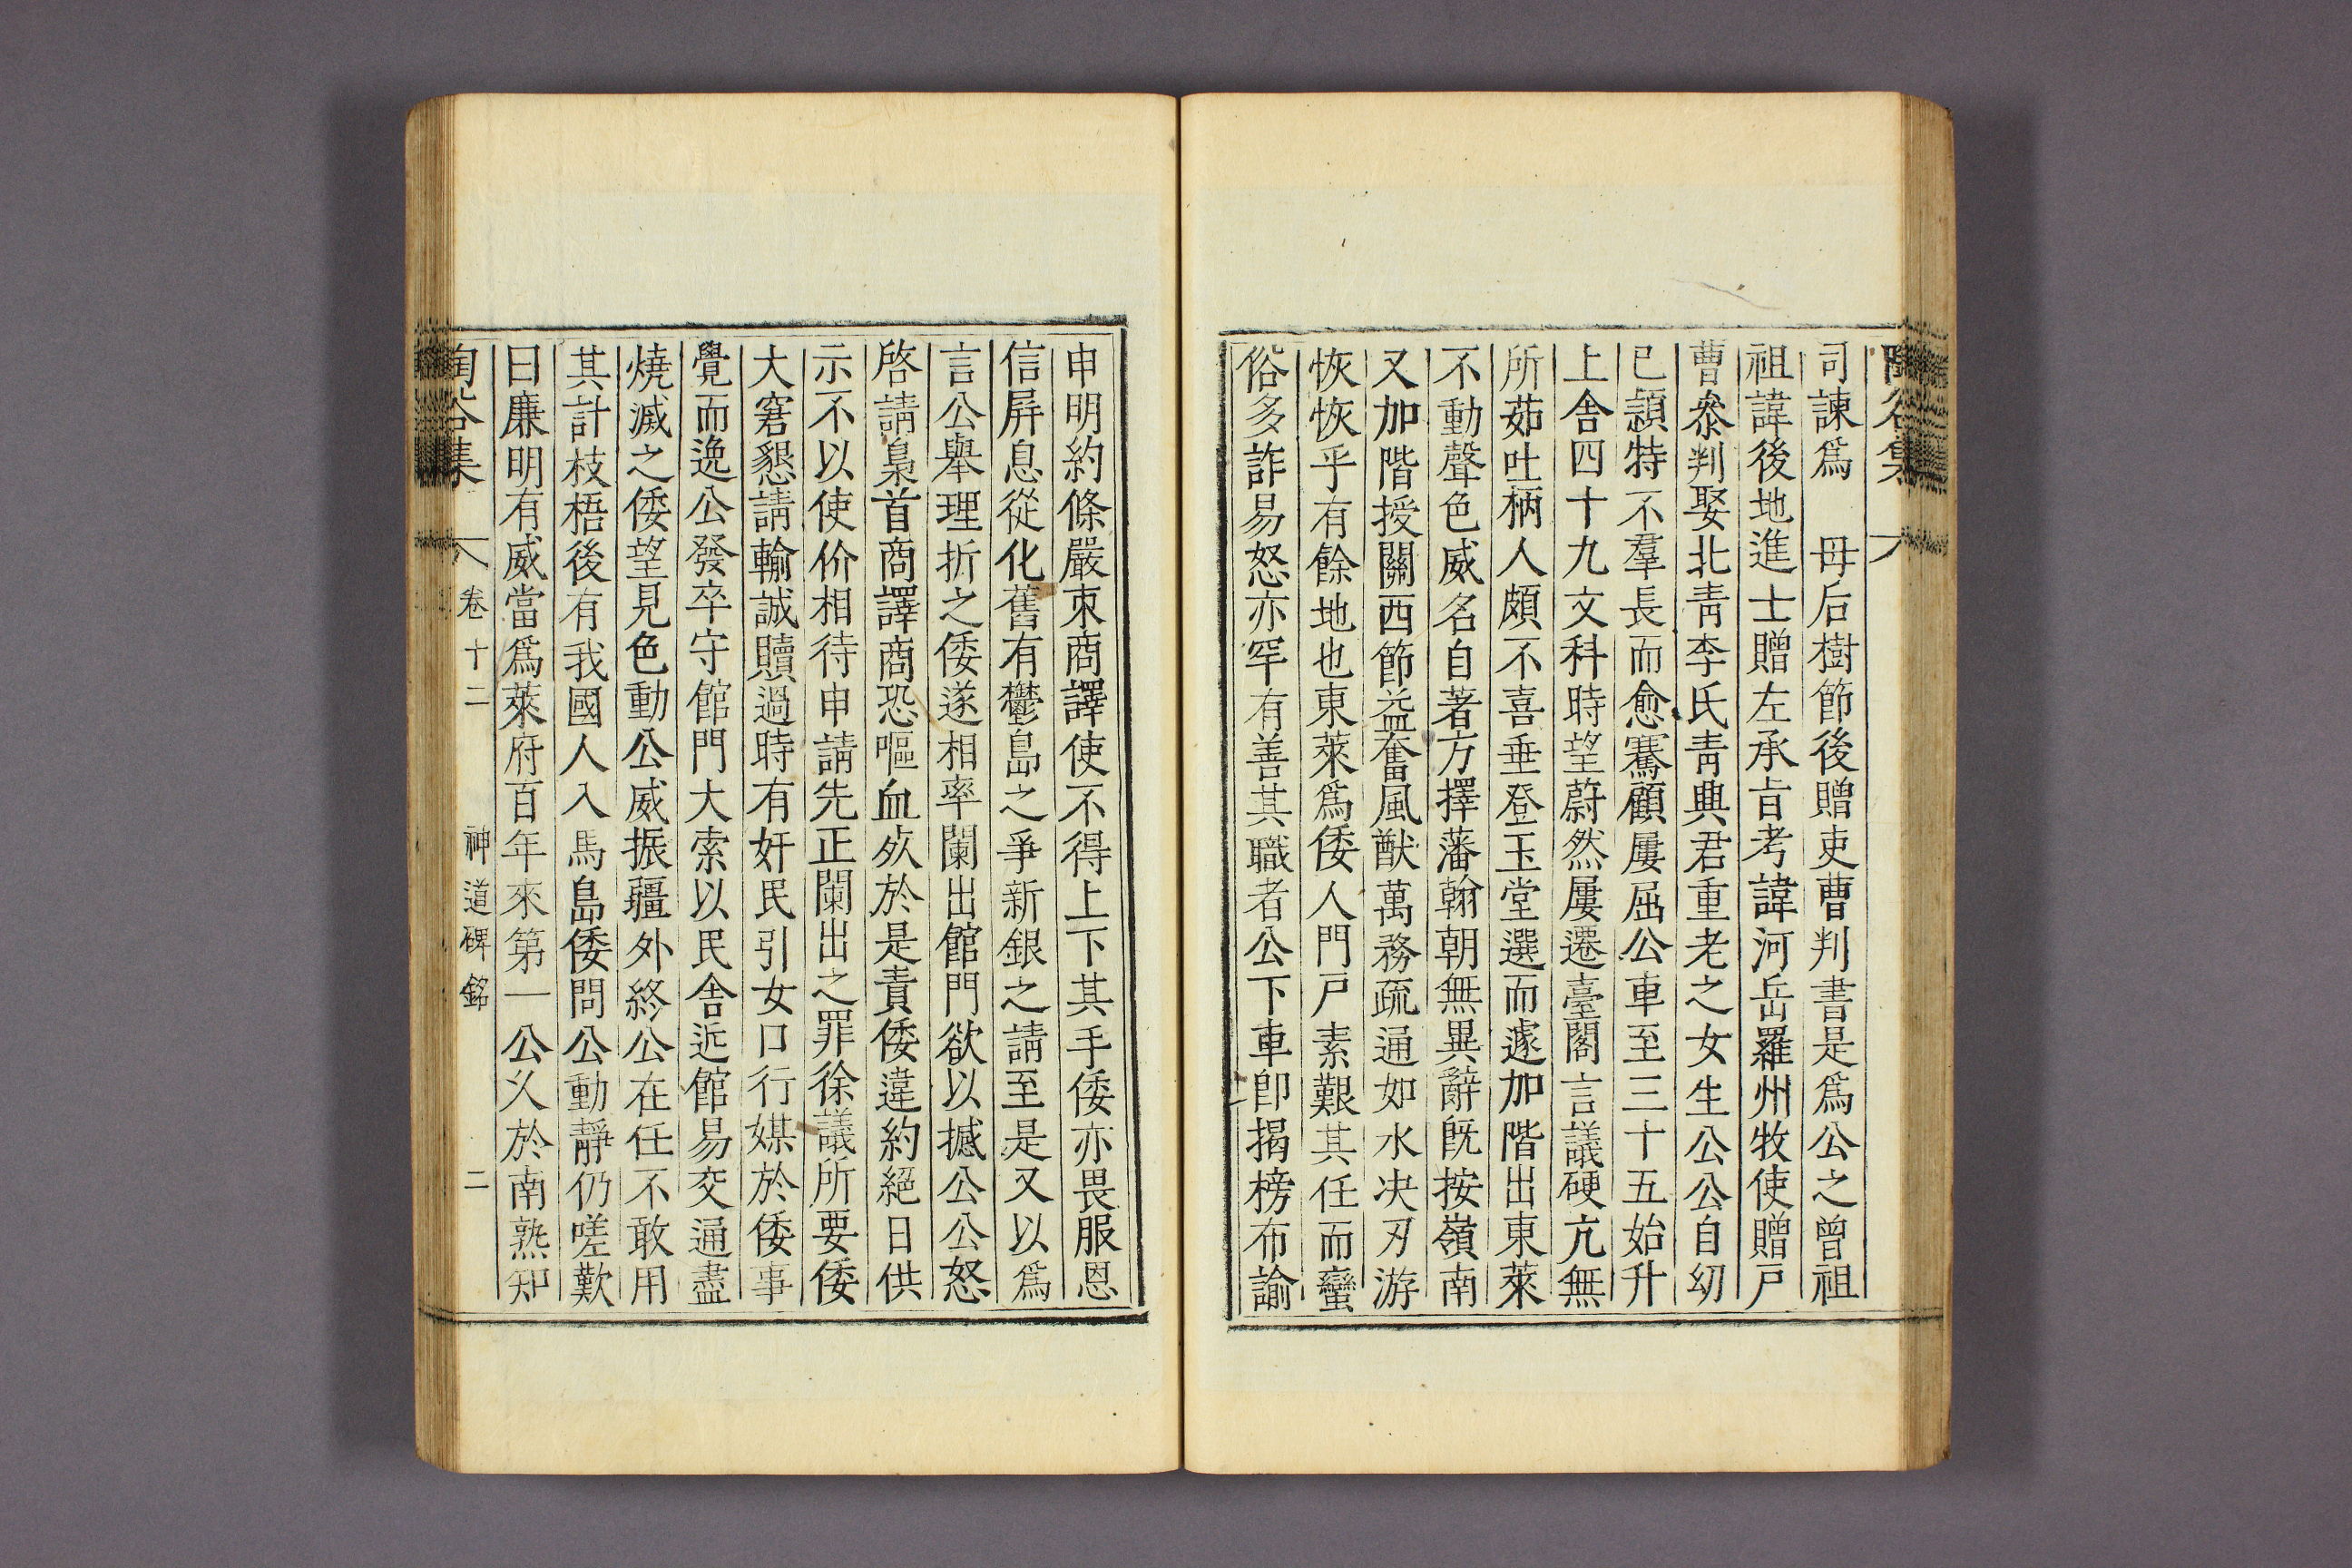 陶谷集
司諫爲　母后樹節後贈吏曹判書是爲公之曾祖
祖諱後地進士贈左承旨考諱河岳羅州牧使贈戶
曹叅判娶北靑李氏靑興君重老之女生公公自㓜
已頴特不羣長而愈騫顧屢屈公車至三十五始升
上舍四十九文科時望蔚然屢遷臺閣言議硬亢無
所茹吐柄人頗不喜垂登玉堂選而遽加階出東萊
不動聲色威名自著方擇藩翰朝無異辭旣按嶺南
又加階授關西節益奮風猷萬務疏通如水决刃游
恢恢乎有餘地也東萊爲倭人門戶素艱其任而蠻
俗多詐易怒亦罕有善其職者公下車卽揭榜布諭
申明約條嚴束商譯使不得上下其手倭亦畏服恩
信屛息從化舊有欝島之爭新銀之請至是又以爲
言公舉理折之倭遂相率闌出館門欲以撼公公怒
啓請梟首商譯商恐嘔血死於是責倭違約絕日供
示不以使价相待申請先正闌出之罪徐議所要倭
大窘懇請輸誠贖過時有奸民引女口行媒於倭事
覺而逸公發卒守館門大索以民舍近館易交通盡
燒滅之倭望見色動公威振疆外終公在任不敢用
其計枝梧後有我國人入馬島倭問公動靜仍嗟歎
曰廉明有威當爲萊府百年來第一公久於南熟知
陶谷集　卷十二　神道碑銘　二